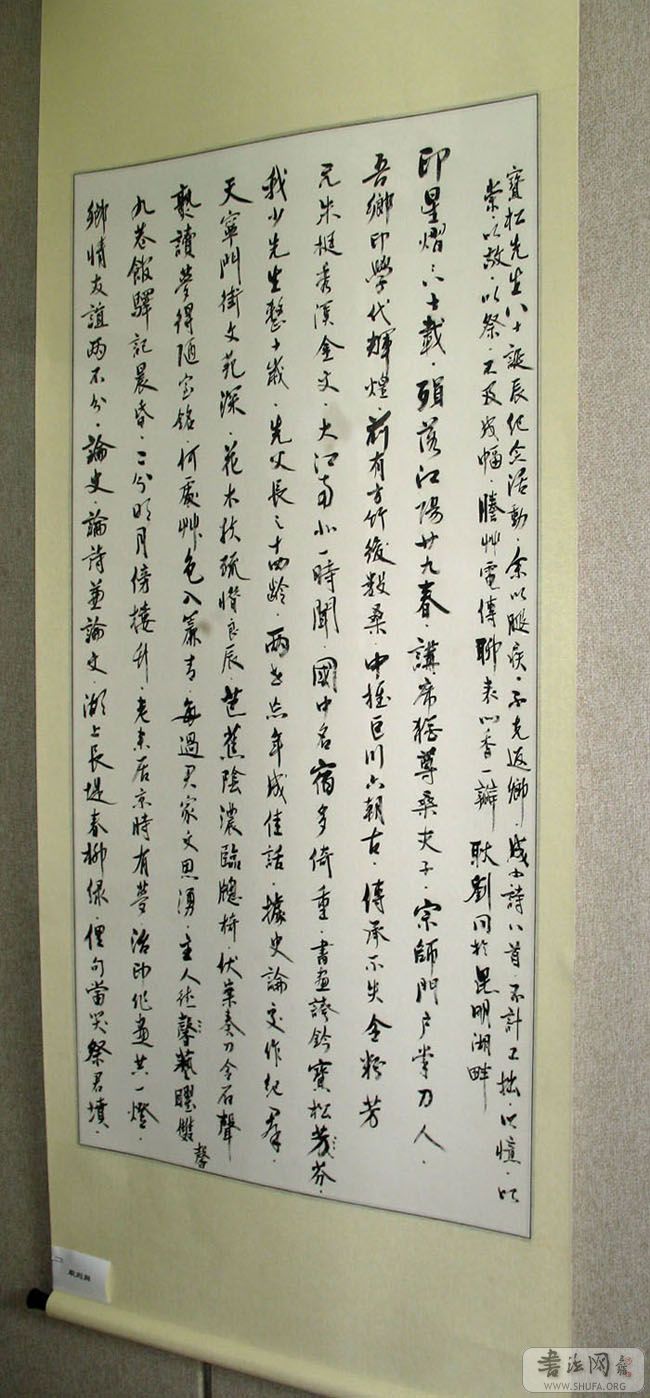 寳松先生八十誕辰纪念活動·余以腿疾·不克返鄉·成小詩八首·不計工拙·以憶·以
崇·以敬以祭·不及成幅·謄艸電傳聊表心香一瓣 耿劉同於昆明湖畔
印星熠十載·殞落江陽廿九春·講席猶尊桑夫子·宗師門户掌刀人·
吾鄉印學代輝煌·前有方竹後數桑·中推巨川六朝古·傳承不失金粉芳
元朱挺秀漢金文·大江南北一時聞·國中名宿多倚重·書畫誇鈐寳松芳芬·
我少先生整十歲·先父長之十四齡·兩世忘年成佳話·據史論交作紀羣·
天寧門街文苑深·花木扶疏惜良辰·芭蕉陰濃臨牕椅伏案奏刀金石聲
熟讀夢得陋室銘·何處艸色入簾青·每過君家文思湧·主人德馨藝雙馨
九巷館驛記晨昏·二分明月傍樓升·老來居京時有夢治印作畫共一燈·
鄉情友誼兩不分·論史·論詩兼論文·湖上長堤春柳绿·俚句當哭祭君墳·
耿劉同
書法网
WWW.SHUFA.ORG